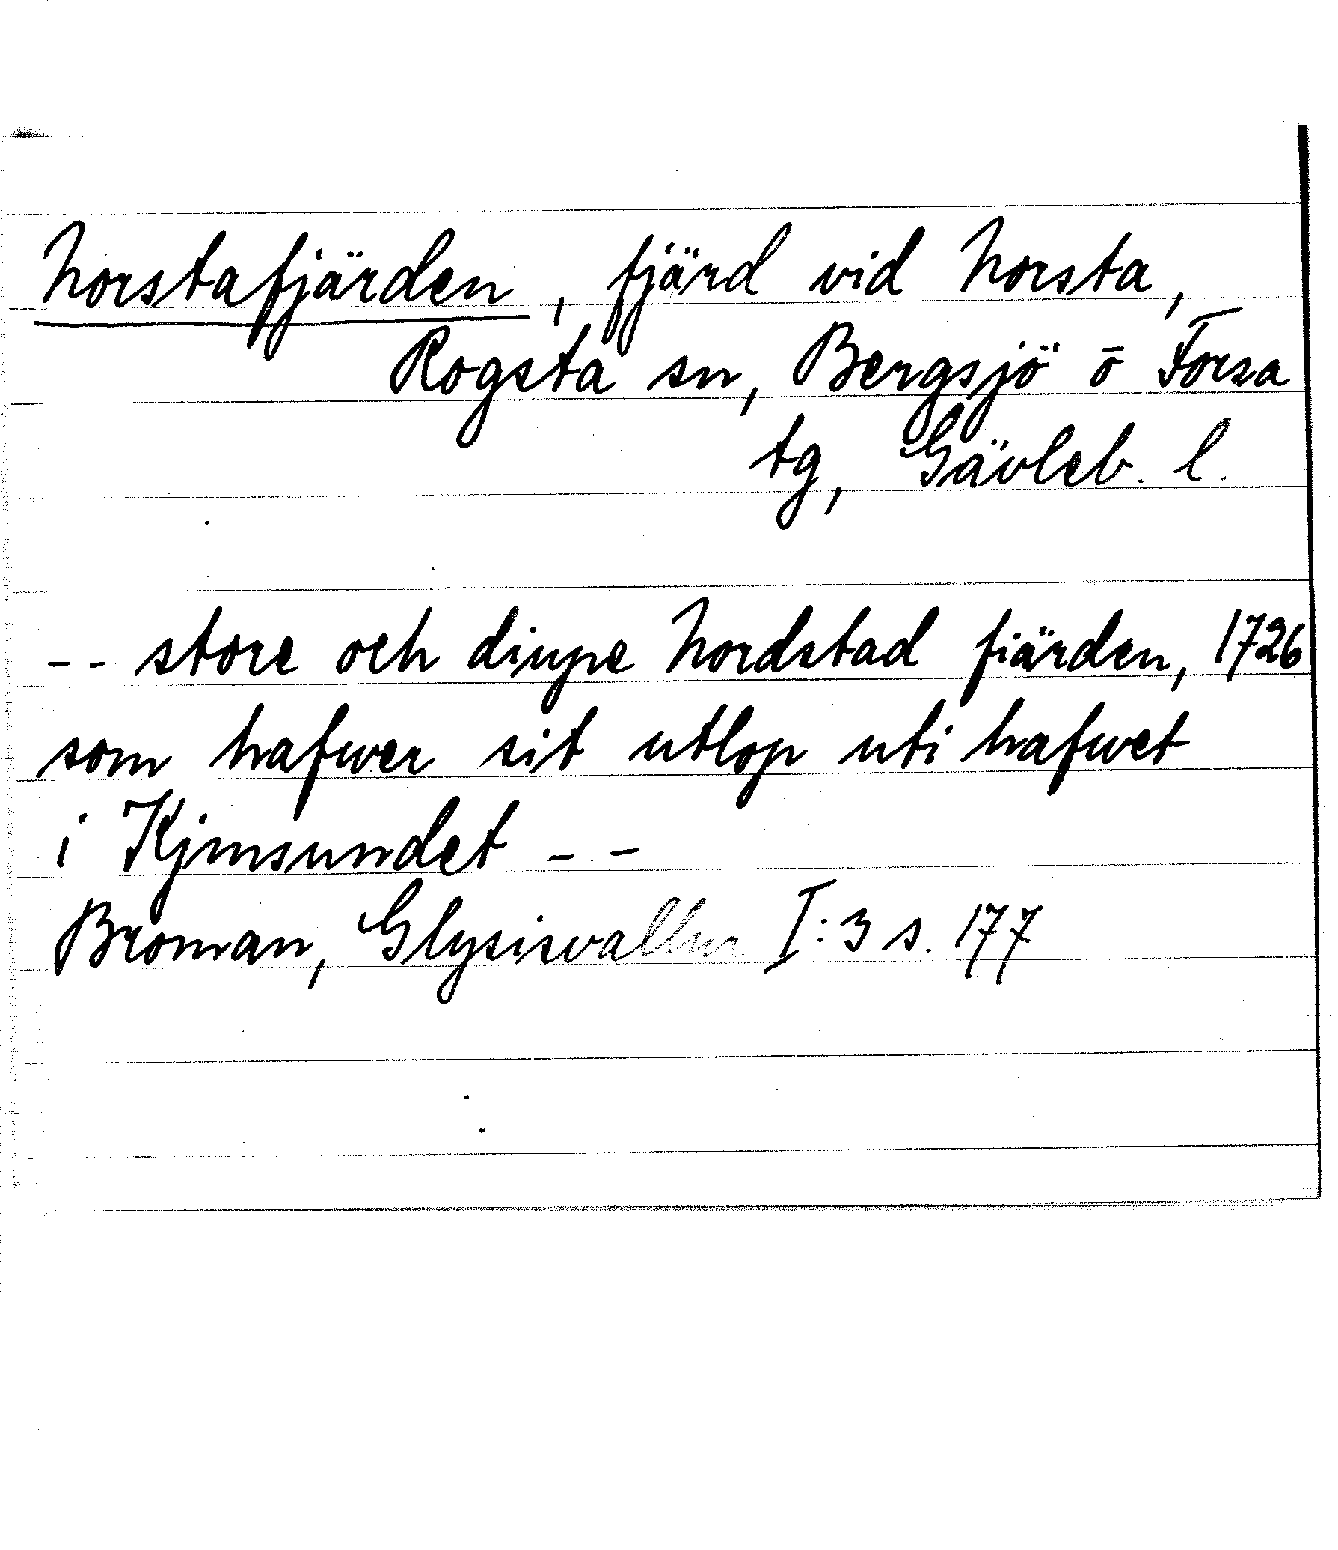 Norstafjärden, fjärd vid Norsta,
Rogsta sn, Bergsjö o Forsa
tg, Gävleb. l.
-- store och diupe Nordstad fiärden, 1726
som hafwer sit utlop uti hafwet
i Kjmsundet --
Broman, Glysisvallur I:3 s. 177